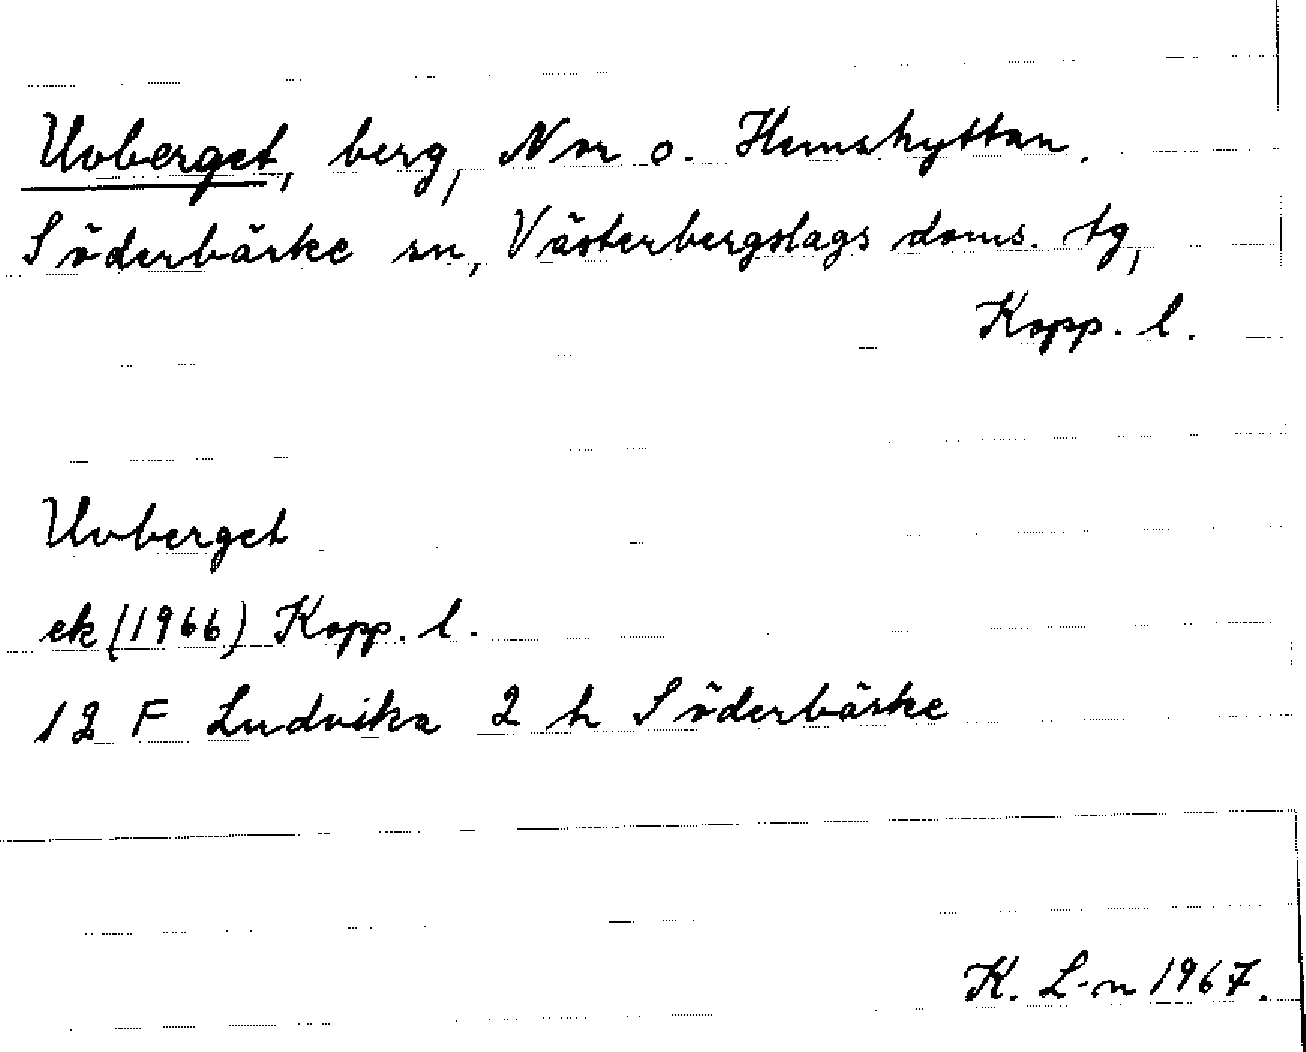 Uvberget, berg, N m o. Hemshyttan.
Söderbärke sn, Västerbergslags doms. tg,
Kopp. l.
Uvberget
ek (1966) Kopp. l.
12 F Ludvika 2 h Söderbärke
K. L-n 1967.